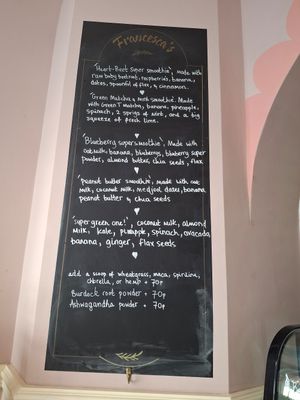 Francesca's
'Heart-Beet super smoothie', made with
raw baby beetroot, raspberries, banana,
dates, spoonful of flax, & cinnamon.
'Green Matcha & mint smoothie'. Made
with Green T matcha, banana, pineapple,
spinach, 2 sprigs of mint, and a big
squeeze of fresh lime.
'Blueberry supersmoothie'. Made with
oat milk, banana, blueberrys, blueberry super
powder, almond butter, chia seeds, flax
'Peanut butter smoothie', made with oat
milk, coconut milk, medjool dates, banana
peanut butter & chia seeds
'super green one!', coconut milk, almond
milk, kale, pineapple, spinach, avacado
banana, ginger, flax seeds
add a scoop of wheatgrass, maca, spirulina,
chlorella, or hemp + 70p
Burdock root powder + 70p
Ashwagandha powder + 70p